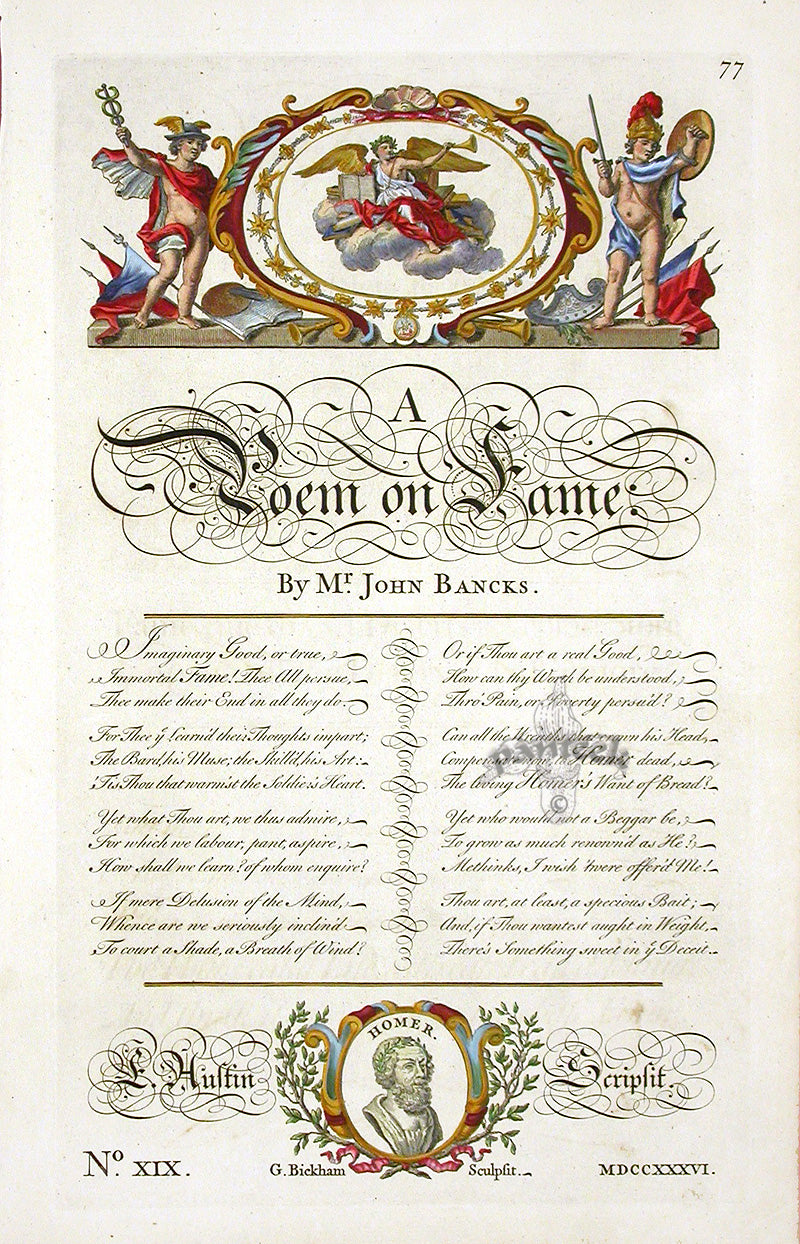 77
A
Poem on Fame:
By Mr. JOHN BANCKS.
Imaginary Good, or true,
Immortal Fame! Thee All persue,
Thee make their End in all they do.
For Thee ẏ Learn'd their Thoughts impart;
The Bard, his Muse; the Skill'd, his Art:
'Tis Thou that warm'st the Soldier's Heart.
Yet what Thou art, we thus admire,
For which we labour, pant, aspire,
How shall we learn? of whom enquire?
If mere Delusion of the Mind,
Whence are we seriously inclin'd
To court a Shade, a Breath of Wind?
Or if Thou art a real Good,
How can thy Worth be understood,
Thro' Pain, or Poverty persu'd?
Can all the Wreaths that crown his Head,
Compensate now, to Homer dead,
The living Homer's Want of Bread?
Yet who would not a Beggar be,
To grow as much renown'd as He?
Methinks, I wish 'twere offer'd Me!
Thou art, at least, a specious Bait;
And, if Thou wantest aught in Weight,
There's Something sweet in ẏ Deceit.
panteek
©
HOMER.
E. Austin Scripsit.
No. XIX. G. Bickham Sculpsit. MDCCXXXVI.